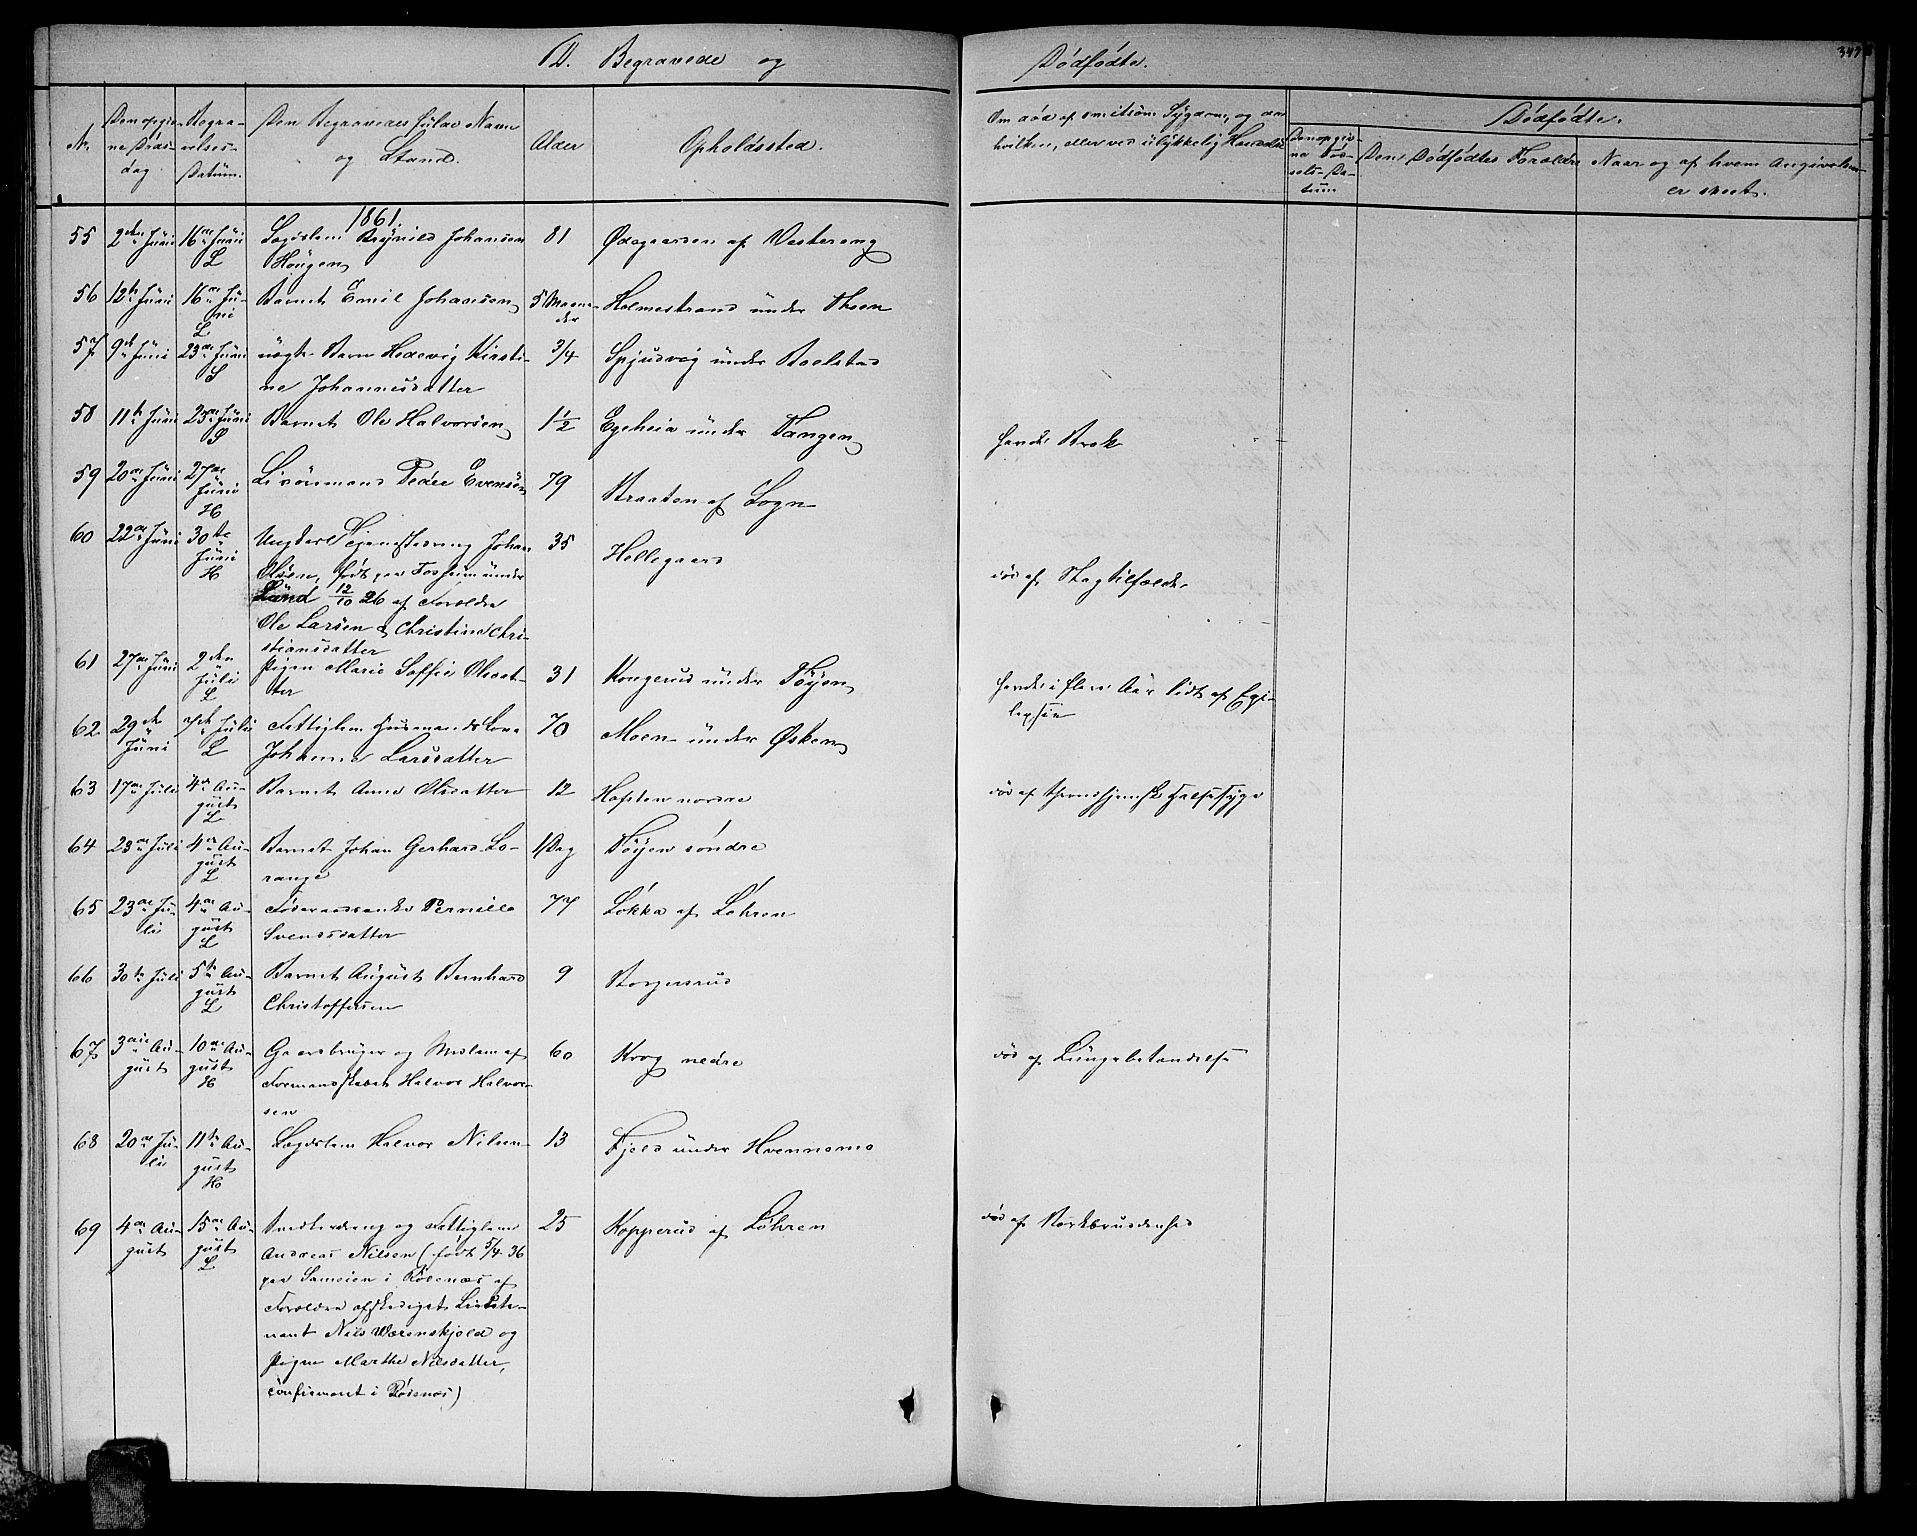 D. Begravede og Dødfødte.
347
No.
Den opgivne Dødsdag
Begravelses-Datum.
Den Begravedes fulde Navn og Stand.
Alder
Opholdssted.
Om død af smitsom Sygdom, og da hvilken, eller ved ulykkelig Hændelse
Dødfødte.
Den opgivne Fødsels-Datum
Den Dødfødtes Forældre
Naar og af hvem Angivelsen er skeet.
1861.
55 2den Juni 16de Juni L Logslem Brynild Johansen Haugen 81 Ødegaarden af Vestereng
56 12te Juni 16de Juni L Barnet Emil Johansen 5 Maaneder Holmestrand under Thson
57 9de Juni 23de Juni S uægte Barn Hedevig Kirstine Johannesdatter 3/4 Spjudvig under Boelstad
58 11te Juni 23de Juni S Barnet Ole Halvorsen 1 1/2 Egeheia under Tangen havde Brok
59 20de Juni 27de Juni H Livørmand Peder Evensen 79 Braaten af Sogn
60 22de Juni 30te Juni H Ungkar Tjenestedreng Johan Olsen, født paa Fosheim under Lund 12/10 26 af Forældre Ole Larsen & Christine Christiansdatter 35 Hellegaard død af Slagtilfælde
61 27de Juni 2den Juli L Pigen Marie Soffie Olsdatter 31 Kongerud under Tøyen havde i flere Aar lidt af Epilepsie
62 29de Juni 7de Juli L Fattiglem Husmands Kone Johanne Larsdatter 70 Moen under Østen
63 17de Juli 4de August L Barnet Anne Olsdatter 12 Haften nordre død af Halssyge
64 23de Juli 4de August L Barnet Johan Gerhard Lorange 1 Dag Tøyen søndre
65 23de Juli 4de August L Føderaadsenke Pernille Svendsdatter 77 Løkka af Løhren
66 30te Juli 5te August L Barnet August Bernhard Christoffersen 9 Borgersrud
67 3die August 10de August H Gaardbruger og Medlem af Formandskabet Halvor Halvorsen 60 Krog nedre død af Lungebetændelse
68 20de Juli 11te August H Logdslem Halvor Nilsen 13 Fjeld under Hvennemo
69 4de August 15de August L Smededreng og Fattiglem Andreas Nilsen (født 5/4 36 paa Sameien i Rødenæs af Forældre afskediget Lieutenant Nils Wærenskjold og Pigen Marthe Nilsdatter, confirmeret i Rødenæs) 25 Kopperud af Løhren død af